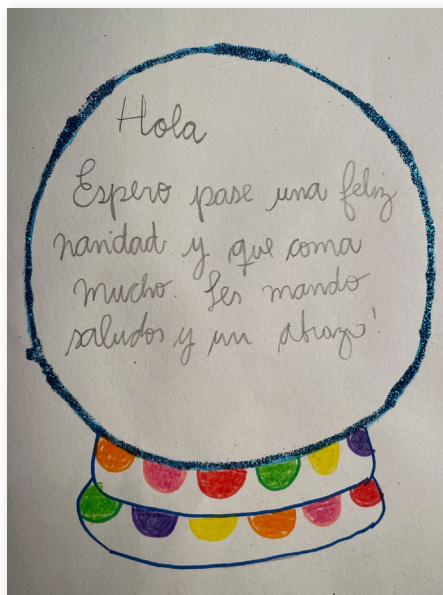 Hola
Espero pase una feliz
navidad y que coma
mucho. Les mando
saludos y un abrazo!